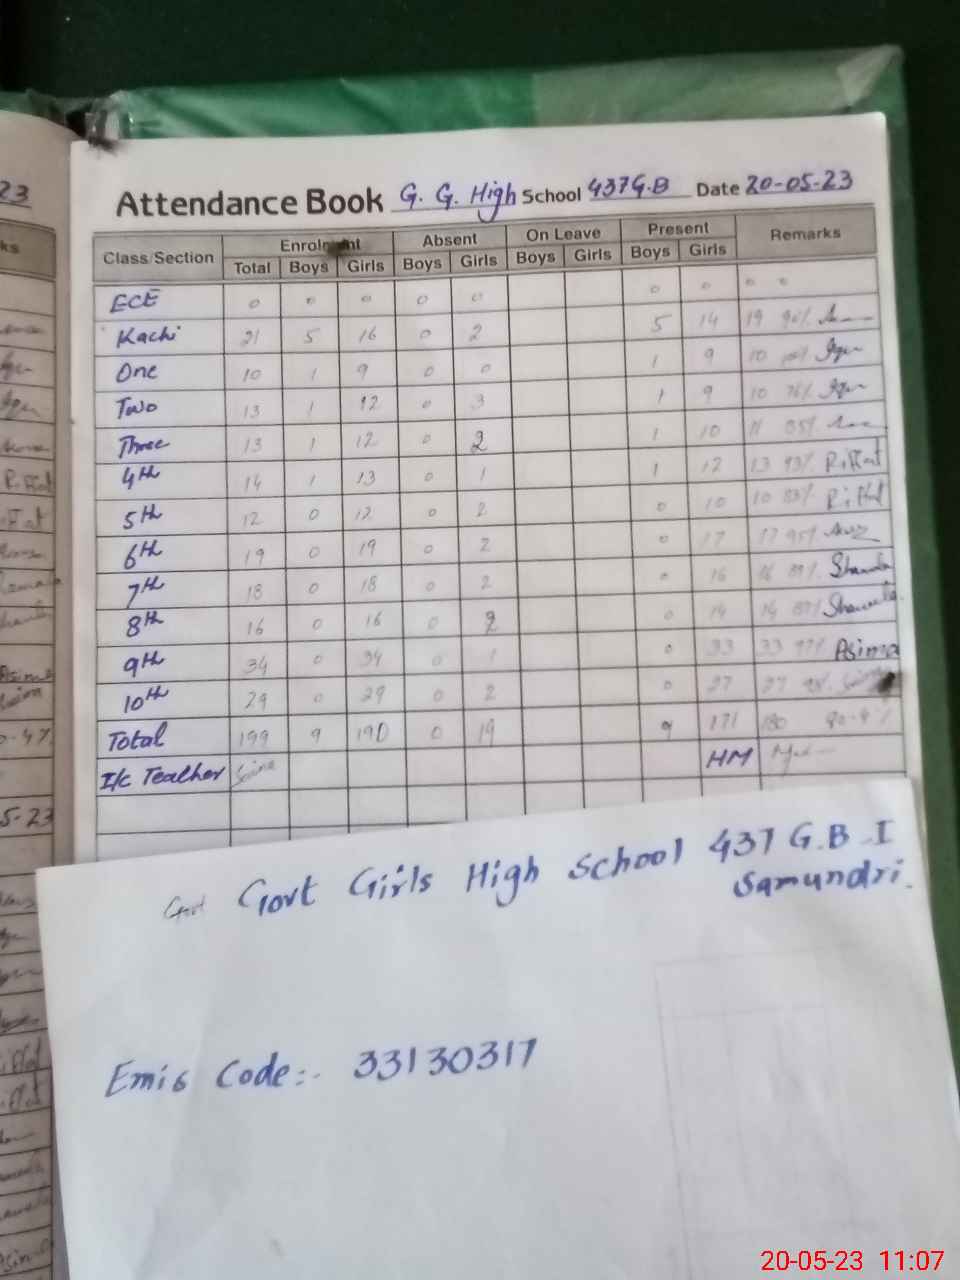 23
Attendance Book G. G. High School 437 G.B Date 20-05-23
Class/Section Enrolment Absent On Leave Present Remarks
Total Boys Girls Boys Girls Boys Girls Boys Girls
ECE 0 0 0 0 0 0 0 0 0
Kachi 21 5 16 0 2 5 14 19 90%
One 10 1 9 0 0 1 9 10
Two 13 1 12 0 3 1 9 10 76%
Three 13 1 12 0 2 1 10 11 85%
4th 14 1 13 0 1 1 12 13 93% Riffat
5th 12 0 12 0 2 0 10 10 83% Riffat
6th 19 0 19 0 2 0 17 17
7th 18 0 18 0 2 0 16 16 89%
8th 16 0 16 0 2 0 14 14 87%
9th 34 0 34 0 1 0 33 33 97% Asima
10th 29 0 29 0 2 0 27 27
Total 199 9 190 0 19 9 171 180 90-4%
I/c Teacher HM
Govt Govt Girls High School 437 G.B-I
Samundri.
Emis Code:- 33130317
20-05-23 11:07